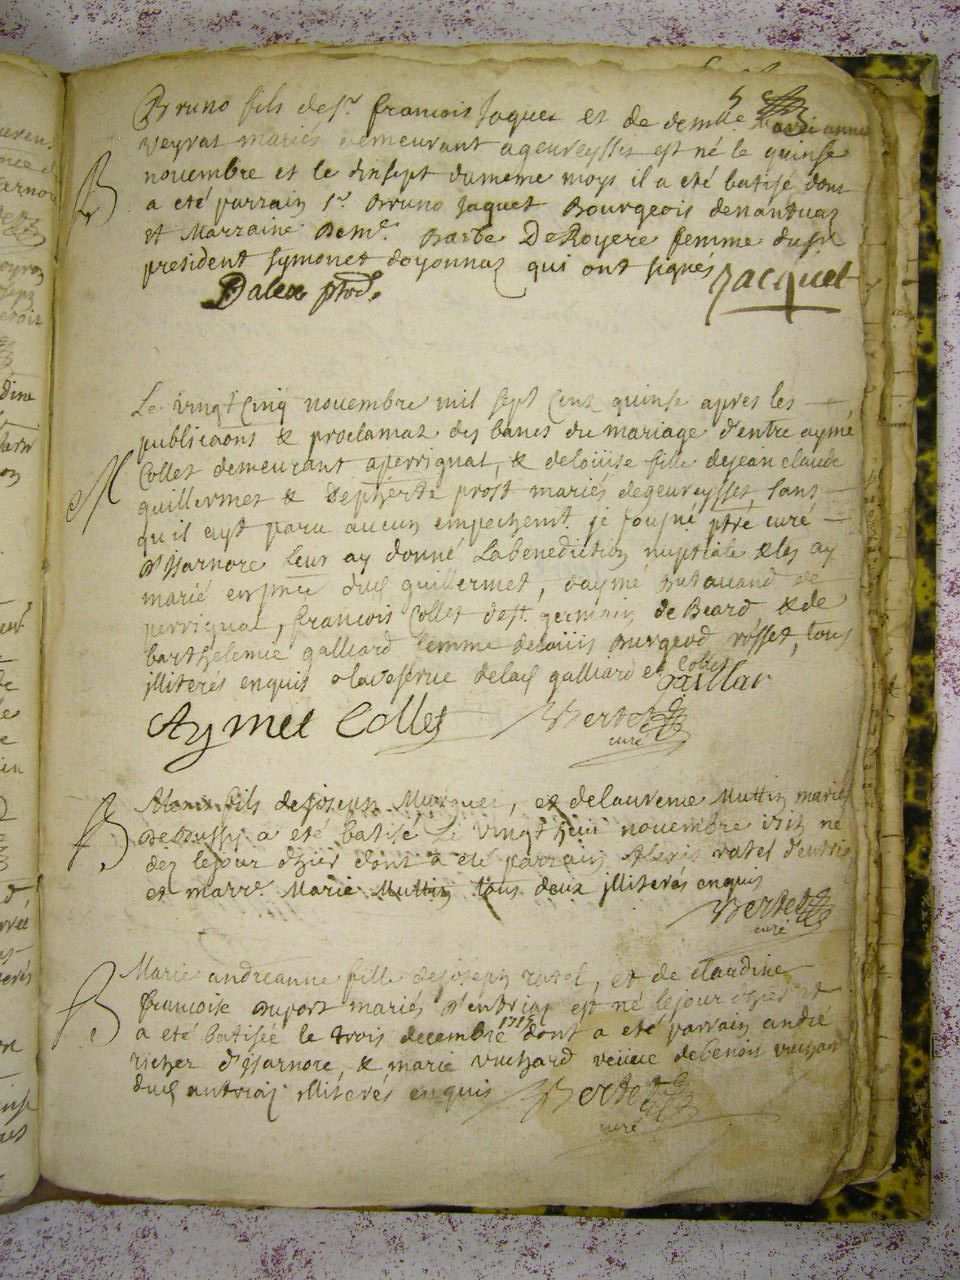 5
Bruno fils de Sr. francois Jaquet et de demlle
veyrat mariés demeurant a geureysset est né le quinse
B
novembre et le dinsept du meme moys il a eté batisé dont
a eté parrain Sr. Bruno Jaquet Bourgeois de nantuaz
et Marraine Deme. Barbe DeRoyere femme du Sr
president Symonet doyonnaz qui ont signés Jacquet
Dalex ptre.
Le vingt Cinq novembre mil sept Cent quinse apres les
publicaons & proclamaz des bancs du mariage d'entre aymé
M
Collet demeurant a perrignat, & de loüise fille de jean claude
guillermet & prost mariés de geureysset, sans
qu il eyt paru aucun empechemt. je sousné ptre curé
D'Isarnore leur ay donné La benediction nuptiale & les ay
marié en pnce dud guillermet, d'aymé de
perrignat, francois Collet de st. germain de Beard & de
barthelemie galliard femme de loüis Burgeod rosset, tous
illiterés enquis a la reserve dela galliard et Collet
Gaillar
Aymel Collet Bertet
curé
B
Alexis fils de joseph, et de laurence Muttin mariés
De Bussy a eté batisé Le vingt huit novembre 1715 ne
dez le jour d'hier dont a eté parrain Alexis ratel
et marre. Marie Muttin tous deux illiterés enquis
Bertet
curé
B
Marie andreanne fille de joseph ratel, et de claudine
francoise Duport mariés est né le jour d'hier et
a eté batisée le trois decembre 1715 dont a eté parrain andré
richer d'Isarnore, & marie vuchard veüeue de benoit vuchard
dud illiterés enquis Bertet
curé